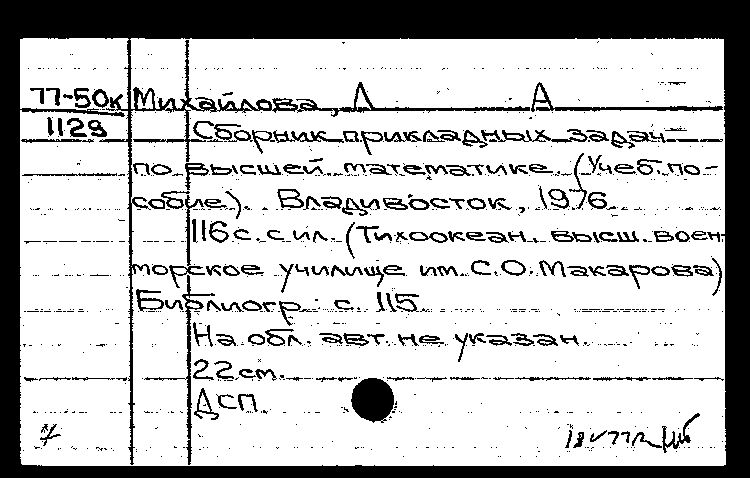 77-50к Михайлова, Л А
1129 Сборник прикладных задач
по высшей математике (Учеб. по-
собие). Владивосток, 1976
116 с. с ил. (Тихоокеан. высш. воен.-
морское училище им. С. О. Макарова)
Библиогр.: с. 115
На обл. авт. не указан.
22 см.
ДСП